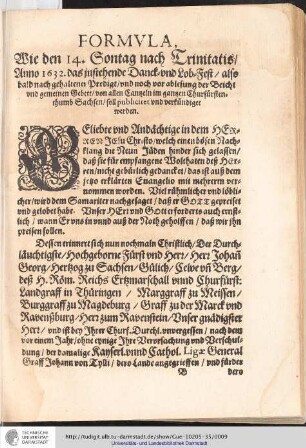 FORMVLA,
Wie den 14. Sontag nach Trinitatis/
Anno 1632. das instehende Danck- und Lob-Fest / also
bald nach gehaltener Predigt / und noch vor ablesung der Beicht
und gemeinen Gebet / von allen Cantzeln im gantzen Churfürsten-
thumb Sachsen / soll publiciret und verkündiget
werden.
Eliebte und Andächtige in dem HEr-
REN JEsu Christo / welch einen bösen Nach-
klang die Neun Jüden hinder sich gelassen /
daß sie für empfangene Wolthaten dem HEr-
ren / nicht gebürlich gedancket / das ist auß dem
jetzo erklärten Evangelio mit mehrern ver-
nommen worden. Viel rühmlicher und löbli-
cher / wird dem Samariter nachgesaget / daß er GOTT gepreiset
und gelobet hab. Unser HErr und Gott erfordert es auch ernst-
lich / wann Er uns in und auß der Noth geholffen / daß wir ihn
preisen sollen.
Dessen erinnert sich nun nochmaln Christlich / Der Durch-
läuchtigste / Hochgeborne Fürst und Herr / Herr Johañ
Georg / Hertzog zu Sachsen / Gülich / Cleve uñ Berg /
deß H. Röm. Reichs Ertzmarschall unnd Churfürst:
Landgraff in Thüringen / Marggraff zu Meissen /
Burggraff zu Magdeburg / Graff zu der Marck und
Ravenßburg / Herr zum Ravenstein / Unser gnädigster
Herr / und ist bey Ihrer Churf. Durchl. unvergessen / nach dem
vor einem Jahr / ohne eynige Ihre Verursachung und Verschul-
dung / der damalige Kayserl. unnd Cathol. Ligæ General
Graff Johann von Tylli / dero Lande angegrieffen / und für den
B dero
TECHNISCHE
UNIVERSITÄT
DARMSTADT
http://tudigit.ulb.tu-darmstadt.de/show/Gue-10205-35/0009
Universitäts- und Landesbibliothek Darmstadt